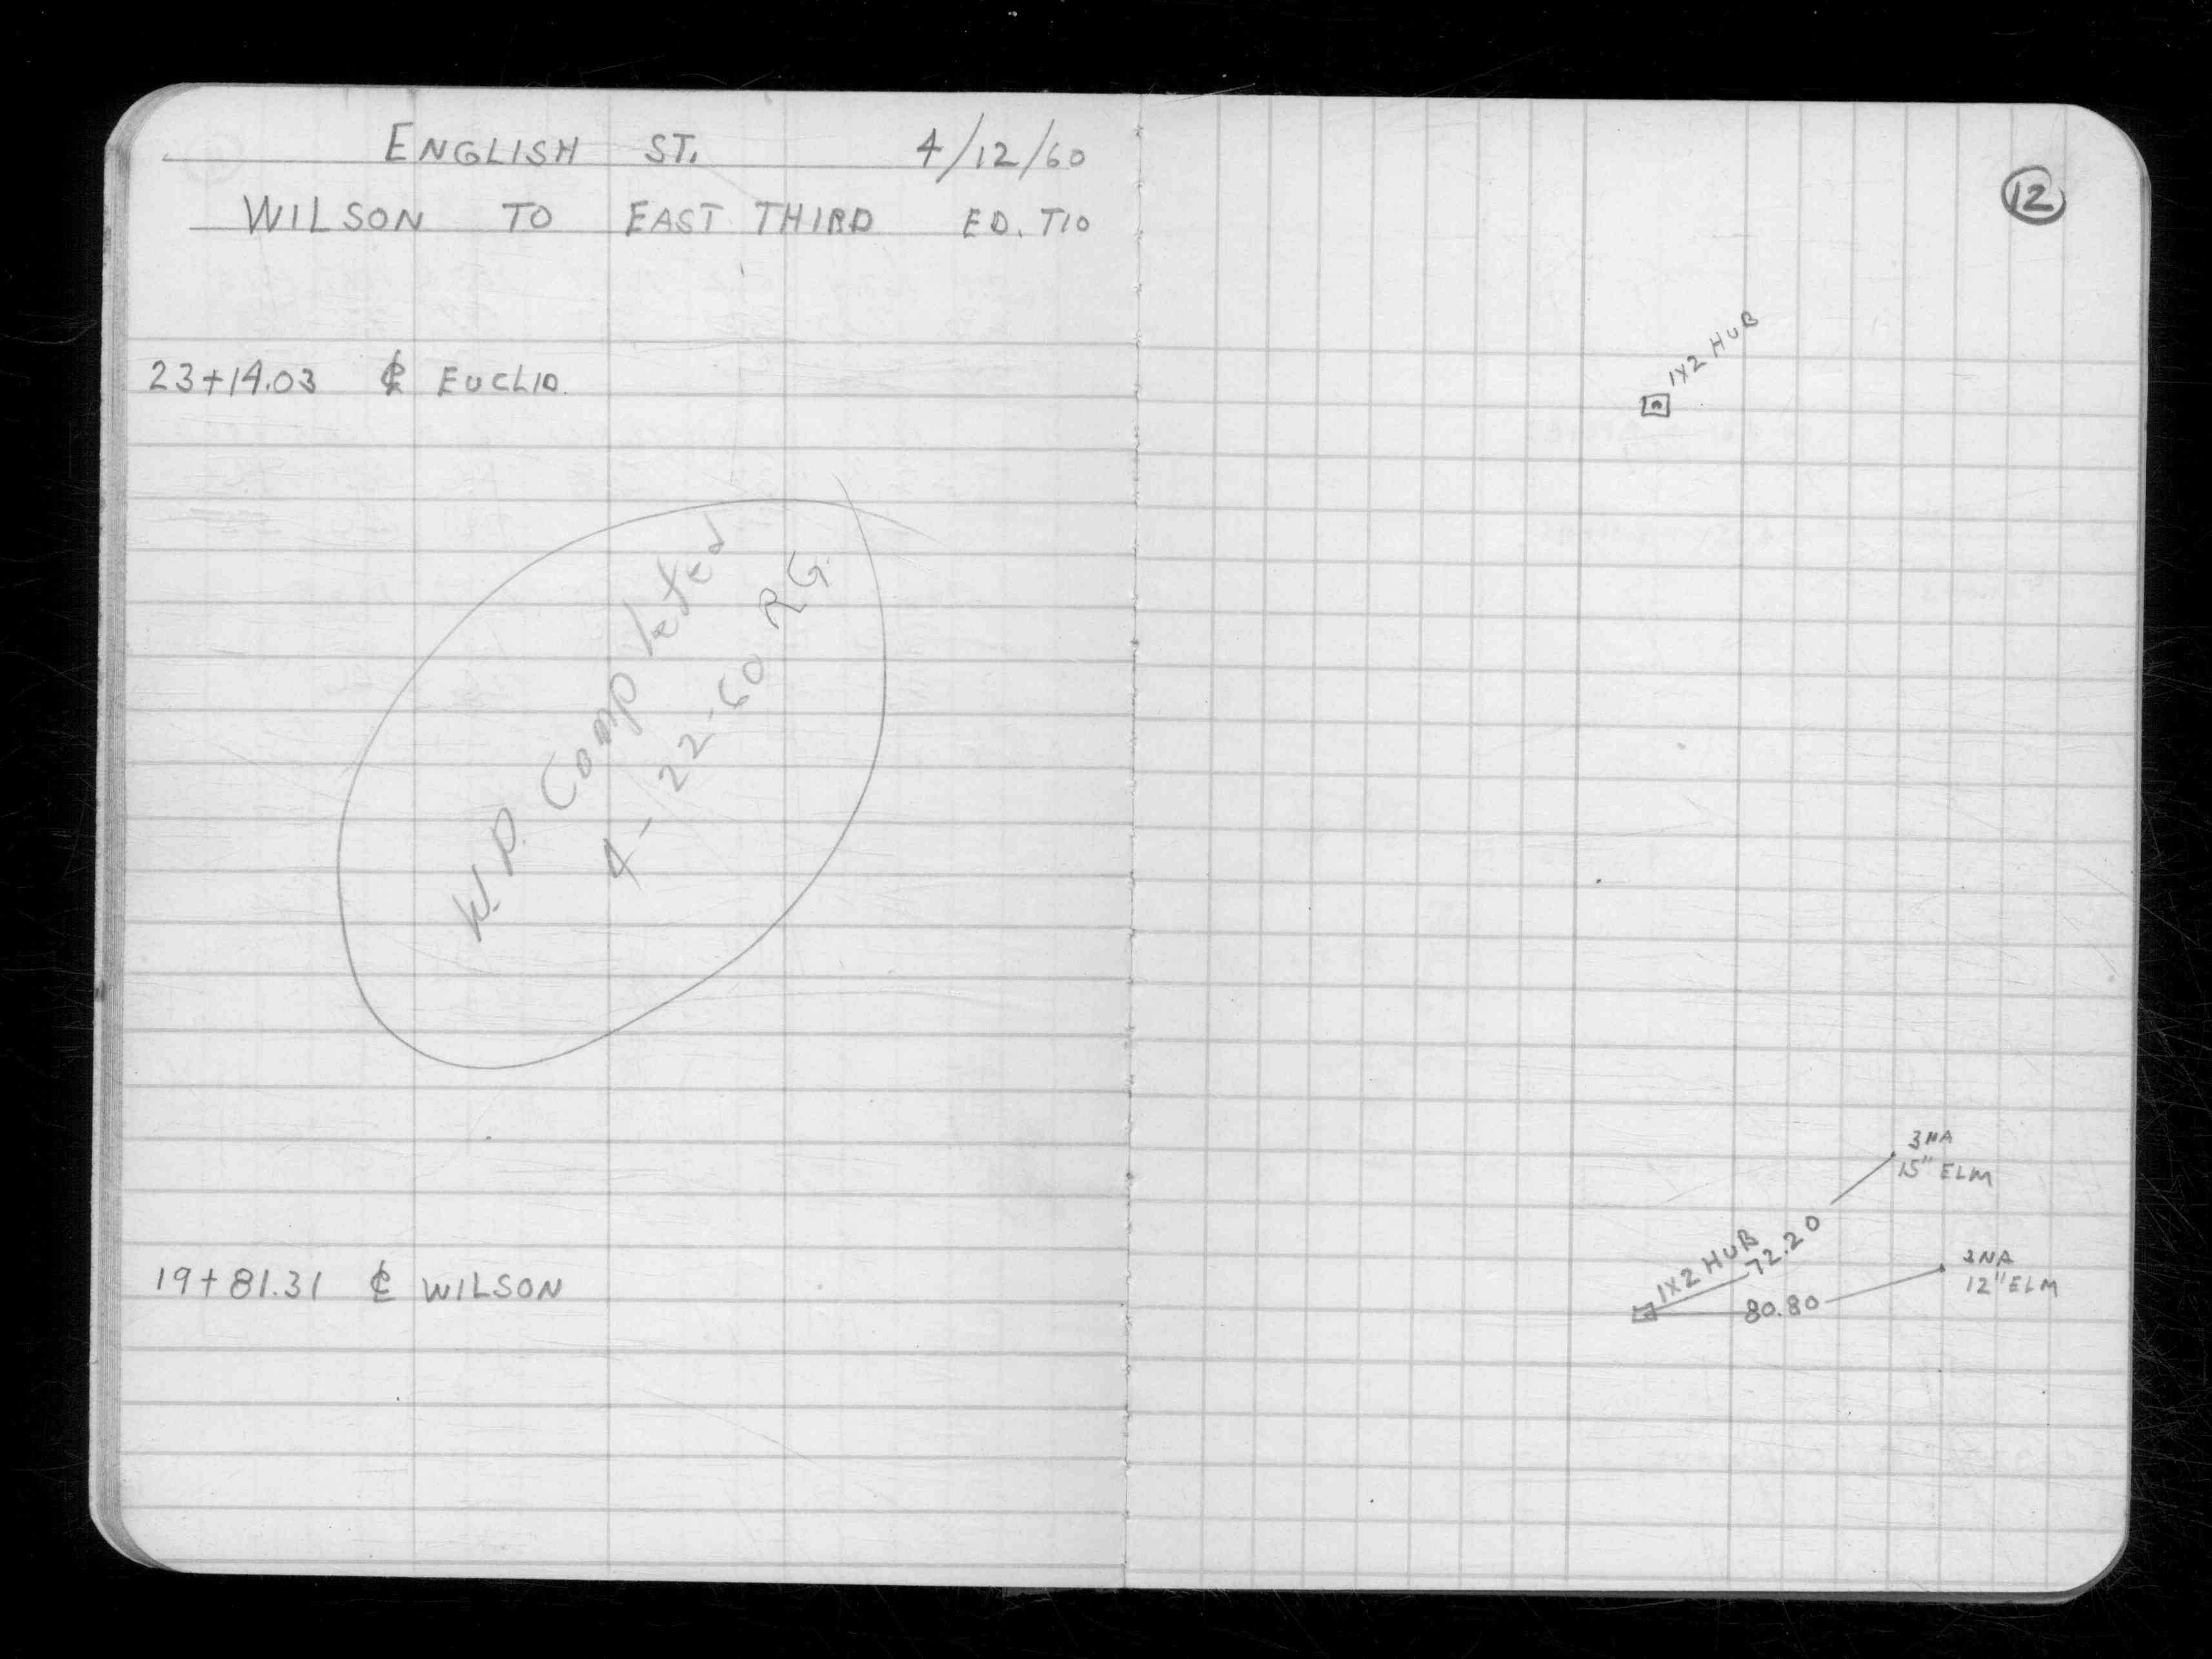 ENGLISH ST. 4/12/60
WILSON TO EAST THIRD ED. T10
23+14.03 ℄ EUCLID.
W.P. Completed
4-22-60 RG.
19+81.31 ℄ WILSON
12
1X2 HUB
3 NA
15" ELM
1X2 HUB
72.20
3 NA
12" ELM
80.80